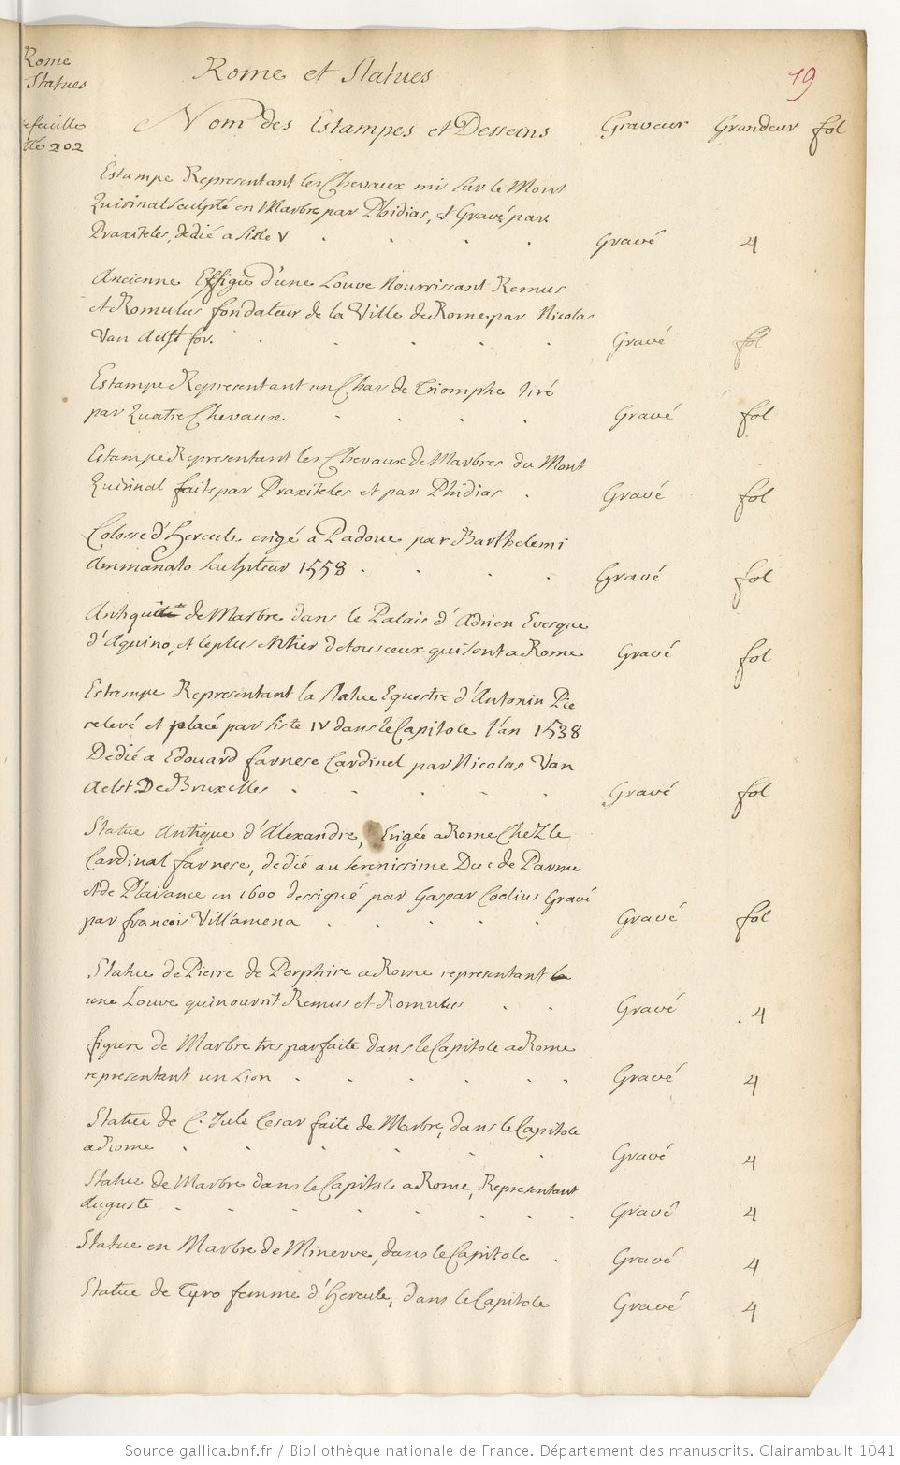 Rome
Statues
Rome et Statues
19
Nom des Estampes et Desseins Graveur Grandeur fol
feuille
202
Estampe Representant les Chevaux mis sur le Mont
Quirinal sculpté en Marbre par Phidias, et Gravé par
Praxiteles, dedié a Sixte V . . . . Gravé 4
Ancienne Effigie d'une Louve Nourrissant Remus
et Romulus fondateur de la Ville de Rome par Nicolas
Van Aelst for. . . . . Gravé fol
Estampe Representant un Char de Triomphe tiré
par Quatre Chevaux. . . . Gravé fol
Estampe Representant les Chevaux de Marbres du Mont
Quirinal faits par Praxiteles et par Phidias . Gravé fol
Colosse d'Hercule erigé a Padoue par Barthelemi
Ammanato Sculpteur 1558 . . . . Gravé fol
Antiquité de Marbre dans le Palais d'Adrien Evesque
d'Aquino, et le plus entier de tous ceux qui sont a Rome Gravé fol
Estampe Representant la Statue Equestre d'Antonin Pie
relevé et placé par Sixte IV dans le Capitole l'an 1538
Dedié a Edouard farnese Cardinel par Nicolas Van
Aelst De Bruxelles . . . . . Gravé fol
Statue Antique d'Alexandre, Erigée a Rome Chez le
Cardinal farnese, dedié au Serenissime Duc de Parme
et de Plaisance en 1600 dessigné par Gaspar Coelius Gravé
par francois Villamena . . . . . Gravé fol
Statue de Pierre de Porphire a Rome representant
une Louve qui nourrit Remus et Romulus . . Gravé 4
figure de Marbre tres parfaite dans le Capitole a Rome
representant un Lion . . . . . . Gravé 4
Statue de C. Jule Cesar faite de Marbre, dans le Capitole
a Rome . . . . . . Gravé 4
Statue de Marbre dans le Capitole a Rome, Representant
Auguste . . . . . . . Gravé 4
Statue en Marbre de Minerve, dans le Capitole . Gravé 4
Statue de Tyro femme d'Hercule, dans le Capitole Gravé 4
Source gallica.bnf.fr / Bibliothèque nationale de France. Département des manuscrits. Clairambault 1041